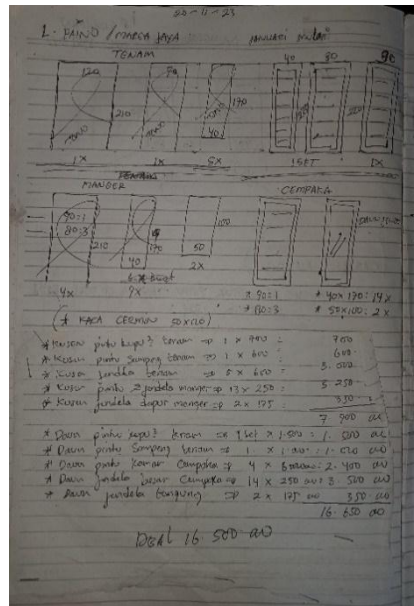 20-11-23
1. PAINO / MARGA JAYA
JANUARI MULAI
TENAM
40 80 90
120
210
170
40
1X 1X 5X 1 SET 1X
MANGER CEMPAKA
90:1
80:3
210
170
40
50
100
4X
2X
* 90:1 * 40 x 170: 14x
* 80:3 * 50x100: 2x
(* KACA CERMIN 50x120)
* Kusen pintu kupu3 tenam => 1 x 700 : 700
* Kusen pintu Samping tenam => 1 x 600 : 600
* Kusen jendela tenam => 5 x 600 : 3.000
* Kusen pintu 2 jendela manger => 13 x 250 = 3.250
* Kusen jendela dapur manger => 2 x 175 350
7 900 00
* Daun pintu kupu3 tenam => 1 set x 1.500 = 1.500 00
* Daun pintu Samping tenam => 1 x 1.000
* Daun pintu kamar Cempaka => 4 x 600 000 = 2.400 00
* Daun jendela besar Cempaka => 14 x 250 00 = 3.500 00
* Daun jendela => 2 x 175 00 350 00
16.650 00
DEAL 16.500 00